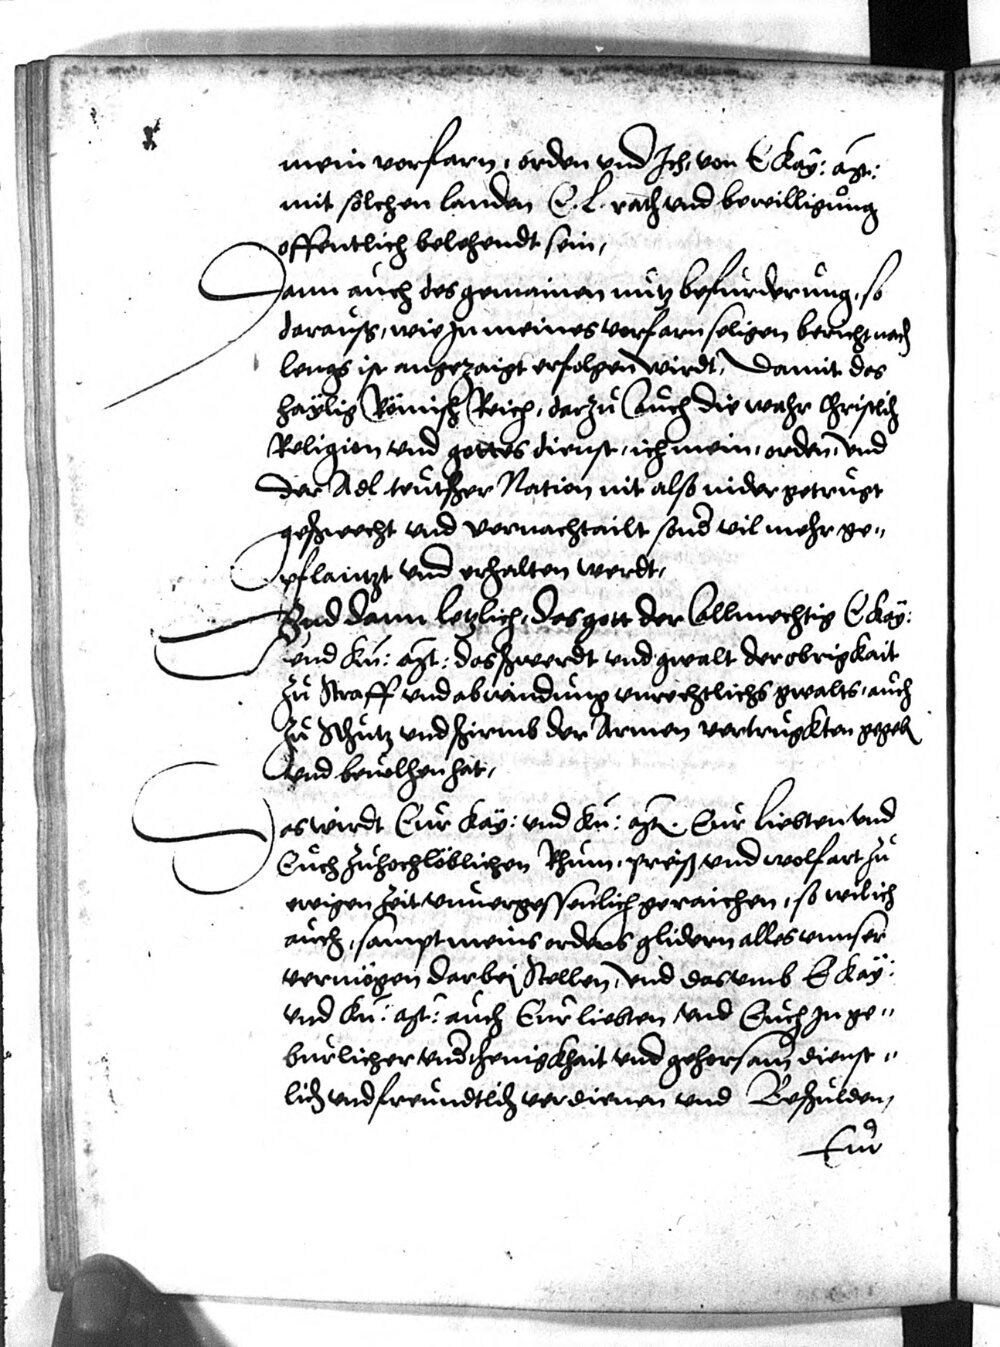 mein vorfarn, orden und Ich, von E Kay: Mt:
mit solchen landen E. L. rath und bewilligung
offentlich belehendt sein,
Dann auch des gemainen nutz befürderung, so
darauss, wie in meines vorfarn seligen bericht nach
lengs ist angezaigt erfolgen wirdt, Damit das
haylig Römisch Reich, darzu auch die wahr Christlich
Religion und gottes dienst, ich mein, orden, und
der Adl teutscher Nation nit also nider getrugt
geschwecht und vernachtailt sond vil mehr ge„
pflantzt und erhalten werdt,
Und dann letzlich, das gott der Allmechtig E Kay:
und Kü: Mt: das schwerdt und gwalt der obrigkait
zu Straff und abwendung unrechtlichs gwalts, auch
zu Schutz und schirmb der Armen vertrugkten gegeben
und bevolhen hat,
Das wirdt Eur Kay: und Kü: Mt. Eur liebten und
Euch zu hochlöblichen Rhum, preiss und wolfart zu
ewigen zeit unvergessenlich geraichen, so wil ich
auch, sampt meins ordens glidern alles unnser
vermögen darbei Stellen, und das umb E Kay:
und Kü: Mt: auch Eur liebten und Euch in ge„
burlicher underthenigkhait und gehorsam dienst„
lich und freundtlich verdienen und Beschulden,
Eur